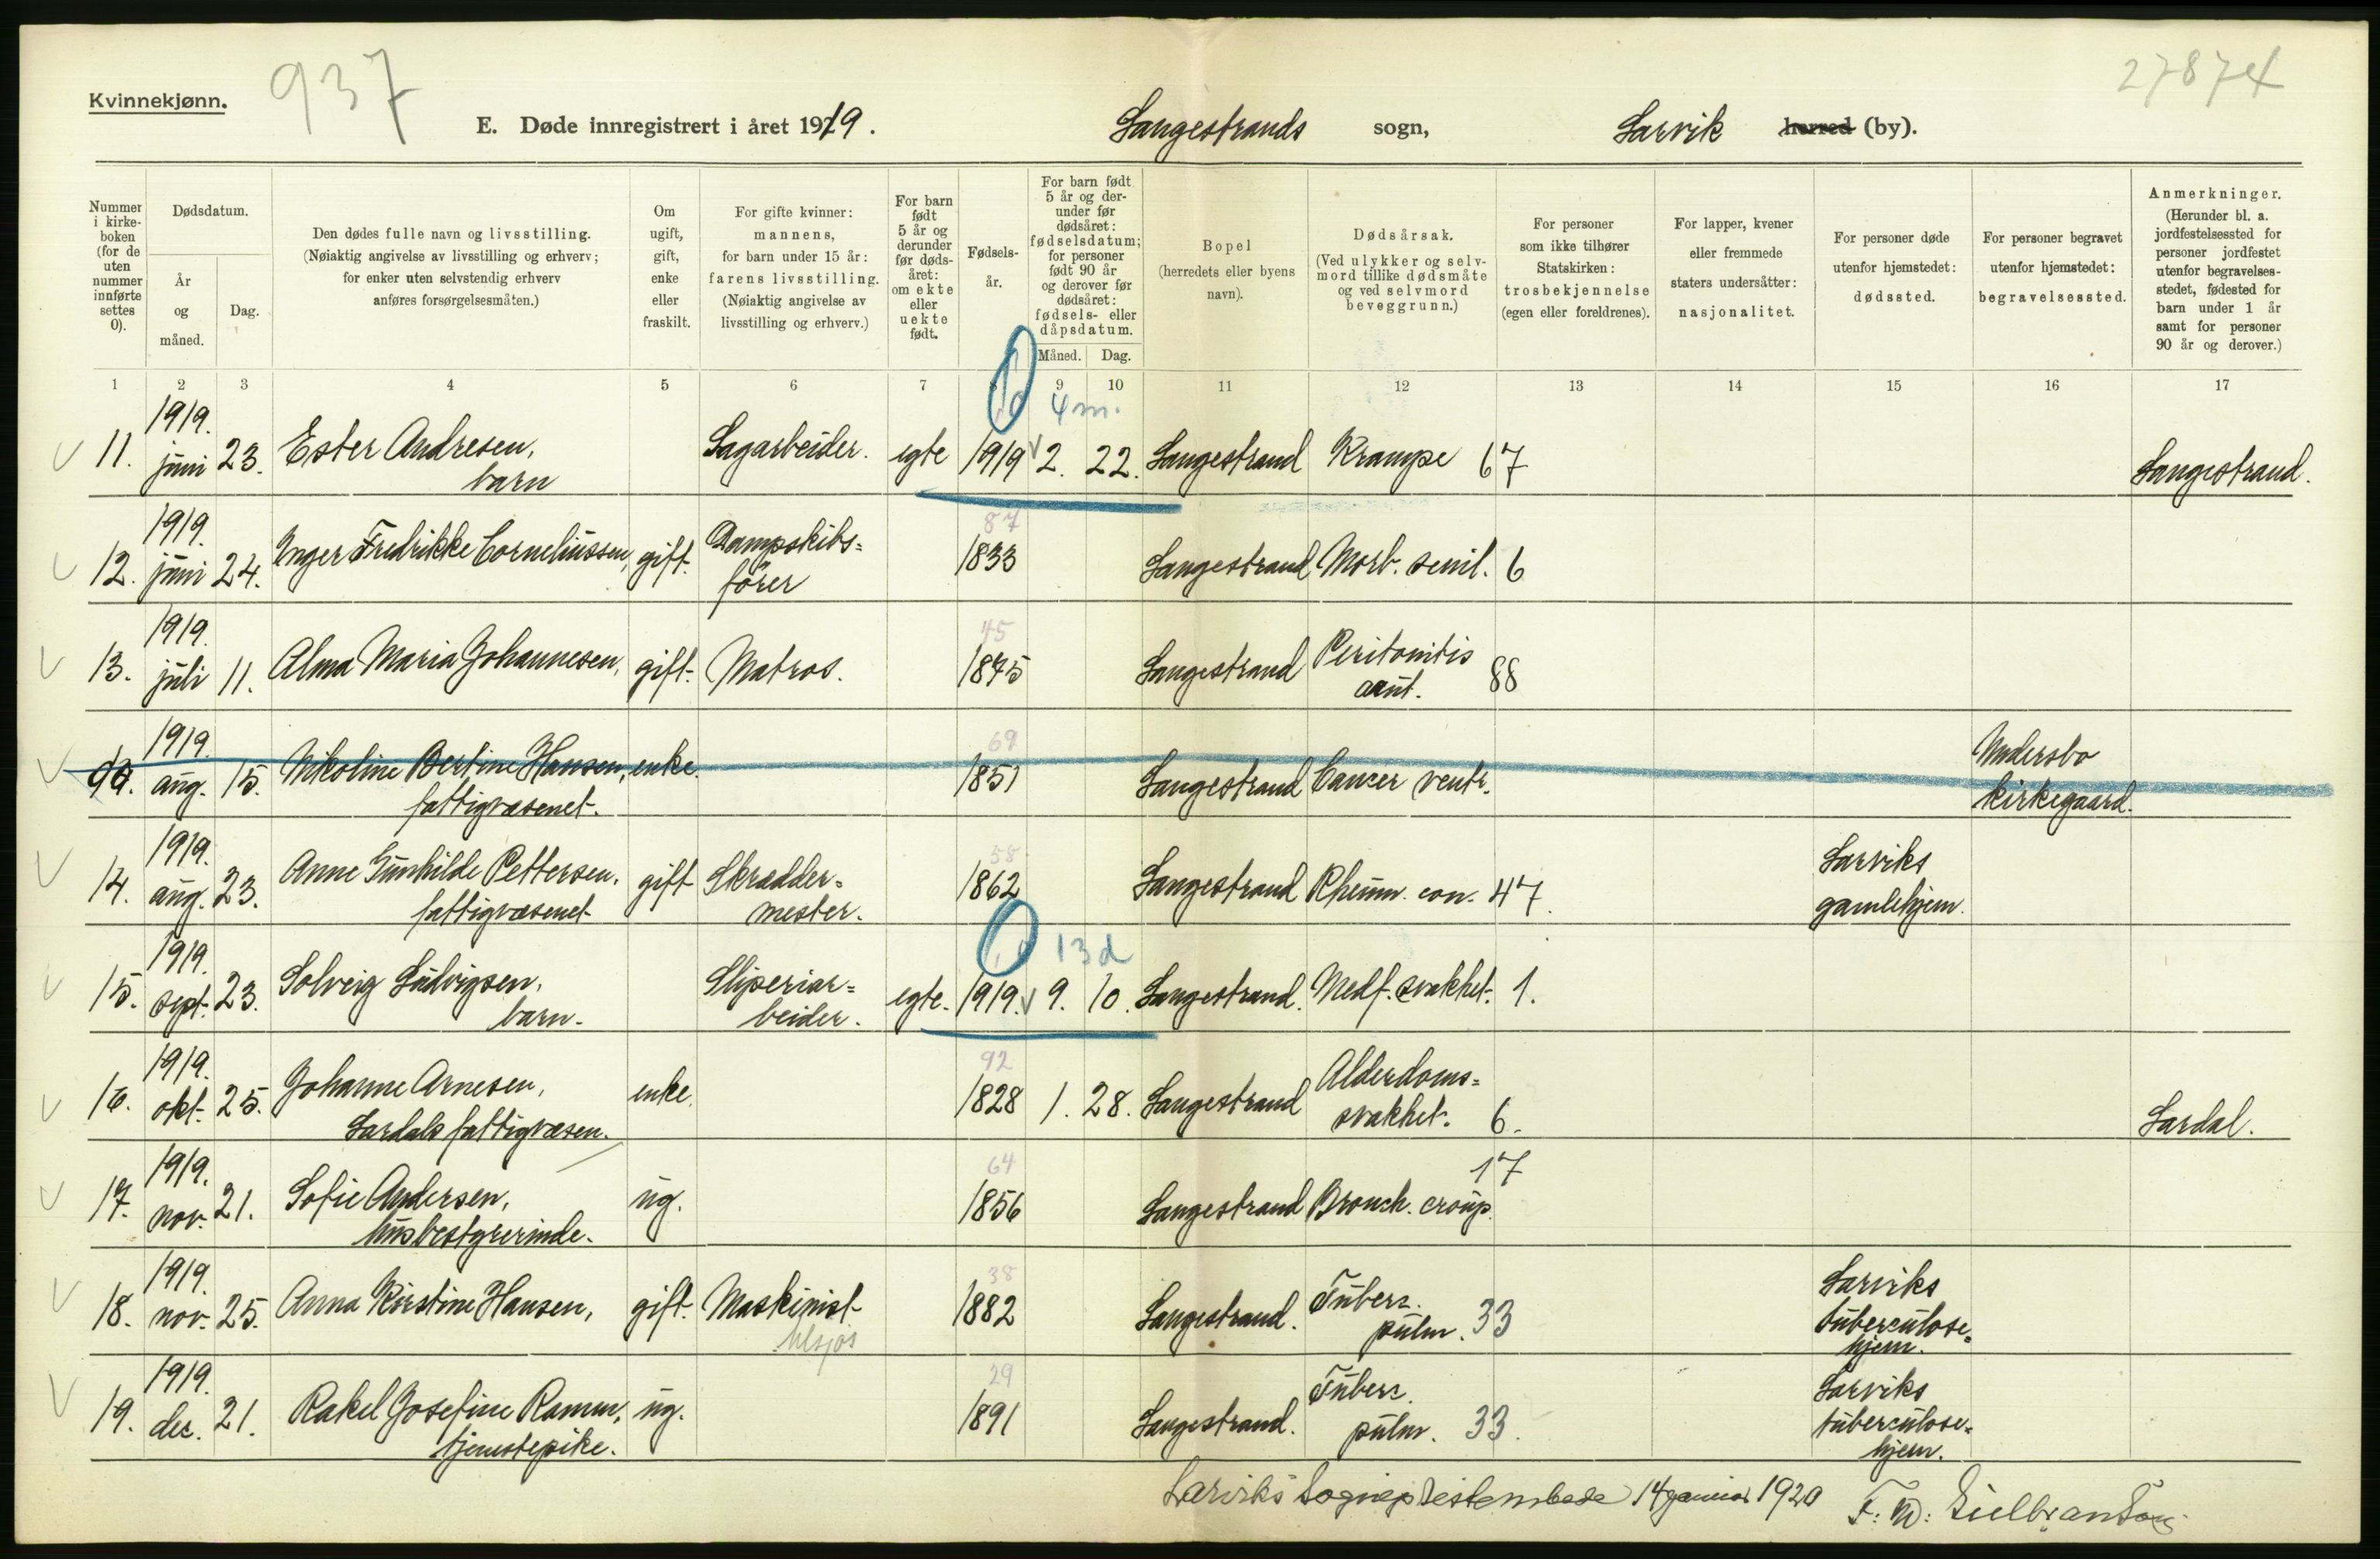 Kvinnekjønn.
937
27874
E. Døde innregistrert i året 1919. Langestrands sogn, Larvik herred (by).
Nummer i kirke-boken (for de uten nummer innførte settes 0).
Dødsdatum.
År og måned.
Dag.
Den dødes fulle navn og livsstilling.
(Nøiaktig angivelse av livsstilling og erhverv;
for enker uten selvstendig erhverv
anføres forsørgelsesmåten.)
Om ugift, gift, enke eller fraskilt.
For gifte kvinner:
mannens,
for barn under 15 år:
farens livsstilling.
(Nøiaktig angivelse av
livsstilling og erhverv.)
For barn født 5 år og derunder før døds-året: om ekte eller uekte født.
Fødsels-år.
For barn født 5 år og der-under før dødsåret: fødselsdatum; for personer født 90 år og derover før dødsåret: fødsels- eller dåpsdatum.
Måned. Dag.
Bopel
(herredets eller byens
navn).
Dødsårsak.
(Ved ulykker og selv-
mord tillike dødsmåte
og ved selvmord
beveggrunn.)
For personer
som ikke tilhører
Statskirken:
trosbekjennelse
(egen eller foreldrenes).
For lapper, kvener
eller fremmede
staters undersåtter:
nasjonalitet.
For personer døde
utenfor hjemstedet:
dødssted.
For personer begravet
utenfor hjemstedet:
begravelsessted.
Anmerkninger.
(Herunder bl. a.
jordfestelsessted for
personer jordfestet
utenfor begravelses-
stedet, fødested for
barn under 1 år
samt for personer
90 år og derover.)
1 2 3 4 5 6 7 8 9 10 11 12 13 14 15 16 17
1919. 4 m.
11. juni 23. Ester Andresen, Sagarbeider. egte 1919 2. 22. Langestrand Krampe 67 Langestrand.
barn
1919. 87
12. juni 24. Inger Fredrikke Corneliussen, gift. Dampskibs= 1833 Langestrand Morb. senil. 6
fører
1919. 45
13. juli 11. Alma Maria Johannesen, gift. Matros. 1875 Langestrand Peritonitis 88
acut.
1919. 69
aug. 15. Nikoline Bertine Hansen, enke. 1851 Langestrand Cancer ventr. Undersbo
fattigvæsenet. kirkegaard.
1919. 58
14. aug. 23. Anne Gunhilde Pettersen. gift Skrædder= 1862 Langestrand Rheum. con. 47. Larviks
fattigvæsenet mester. gamlehjem.
1919. 13 d
15. sept. 23. Solveig Ludvigsen, Sliperiar= egte. 1919. 9. 10. Langestrand. Medf. svakhet. 1.
barn. beider.
1919. 92
16. okt. 25. Johanne Arnesen, enke. 1828 1. 28. Langestrand Alderdoms=
Lardals fattigvæsen. svakhet. 6. Lardal.
1919. 64 17
17. nov. 21. Sofie Andersen, ug. 1856 Langestrand Bronch. croup.
husbestyrerinde.
1919. 38
18. nov. 25. Anna Kirstine Hansen, gift. Maskinist 1882 Langestrand. Tuberc. Larviks
pulm. 33 tuberculose=
hjem.
1919. 29
19. dec. 21. Rakel Josefine Ramm, ug. 1891 Langestrand. Tuberc. Larviks
tjenestepike. pulm. 33. tuberculose=
hjem.
Larviks Sogneprestembede 14 januar 1920